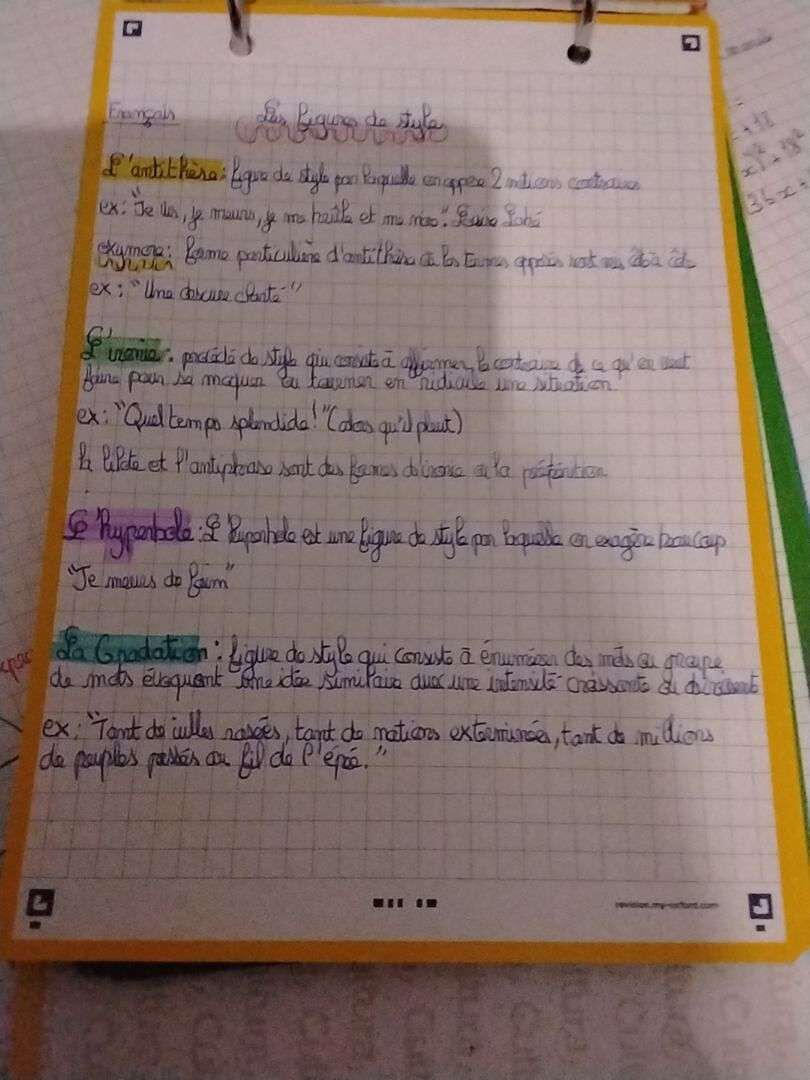 Français Les figures de style
L'antithèse : figure de style par laquelle on oppose 2 notions contraires
ex : "Je vis, je meurs, je me brûle et me noie". Louise Labé
oxymore : forme particulière d'antithèse où les termes opposés sont mis côte à côte
ex : "Une obscure clarté"
L'ironie : procédé de style qui consiste à affirmer le contraire de ce qu'on veut
faire pour se moquer ou tourner en ridicule une situation.
ex : "Quel temps splendide !" (alors qu'il pleut)
la litote et l'antiphrase sont des formes d'ironie ou la prétérition
L'hyperbole : L'hyperbole est une figure de style par laquelle on exagère beaucoup
"Je meurs de faim"
La Gradation : figure de style qui consiste à énumérer des mots ou groupe
de mots évoquant une idée similaire avec une intensité croissante ou décroissante
ex : "Tant de villes rasées, tant de nations exterminées, tant de millions
de peuples passés au fil de l'épée."
revision.my-oxford.com